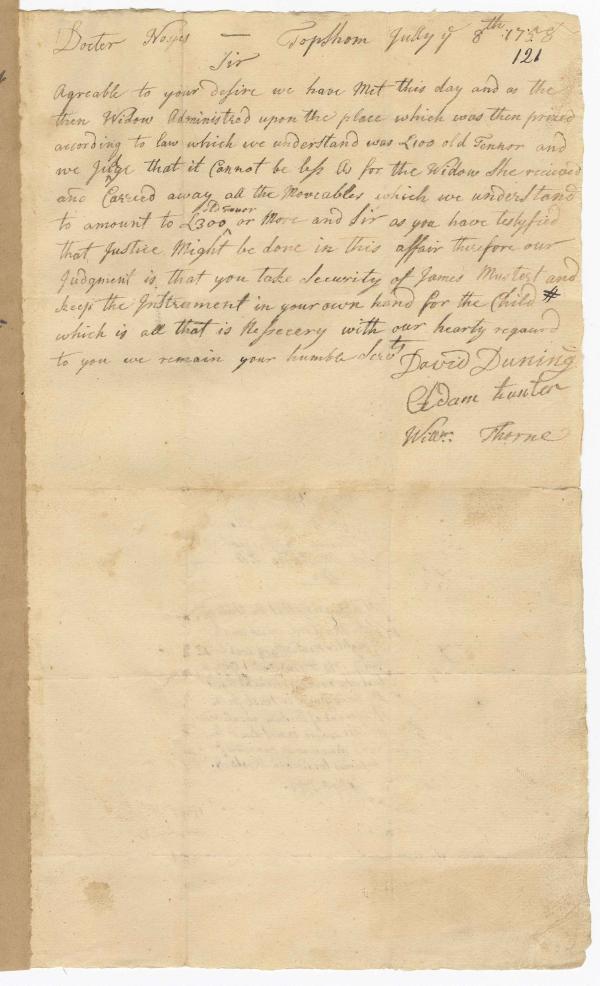 Docter Noyes — Topshom Jully ye 8th 1758
121
Sir
Agreable to your desire we have Met this day and as the
then Widow Administred upon the place which was then prized
according to law which we understand was £100 old Tennor and
we Judge that it Cannot be less As for the Widow She received
and Carried away all the Moveables which we understand
old Tenor
to amount to £300 ^ or More and Sir as you have testyfied
that Justice Might be done in this affair therefore our
Judgment is that you take Security of James Mustert and
keep the Instrument in your own hand for the Child #
which is all that is Nessecery with our hearty regaurd
to you we remain your humble Servts
David Duning
Adam hunter
Willm. Thorne